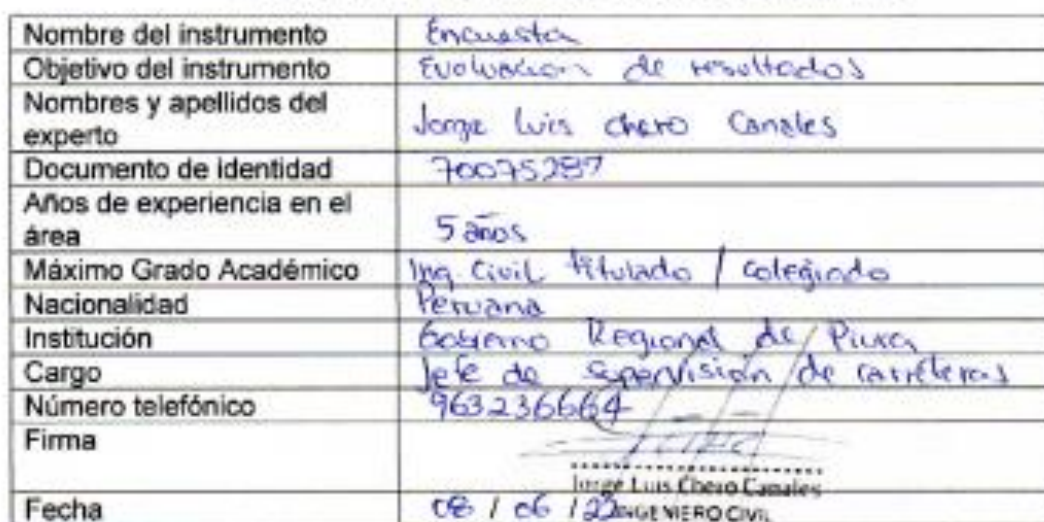 Nombre del instrumento Encuesta
Objetivo del instrumento Evaluacion de resultados
Nombres y apellidos del
experto Jorge Luis Chero Canales
Documento de identidad 70075287
Años de experiencia en el
área 5 años
Máximo Grado Académico Ing. Civil titulado / colegiado
Nacionalidad Peruana
Institución Gobierno Regional de Piura
Cargo Jefe de supervisión de carreteras
Número telefónico 963236664
Firma
Jorge Luis Chero Canales
INGENIERO CIVIL
Fecha 08 / 06 / 22